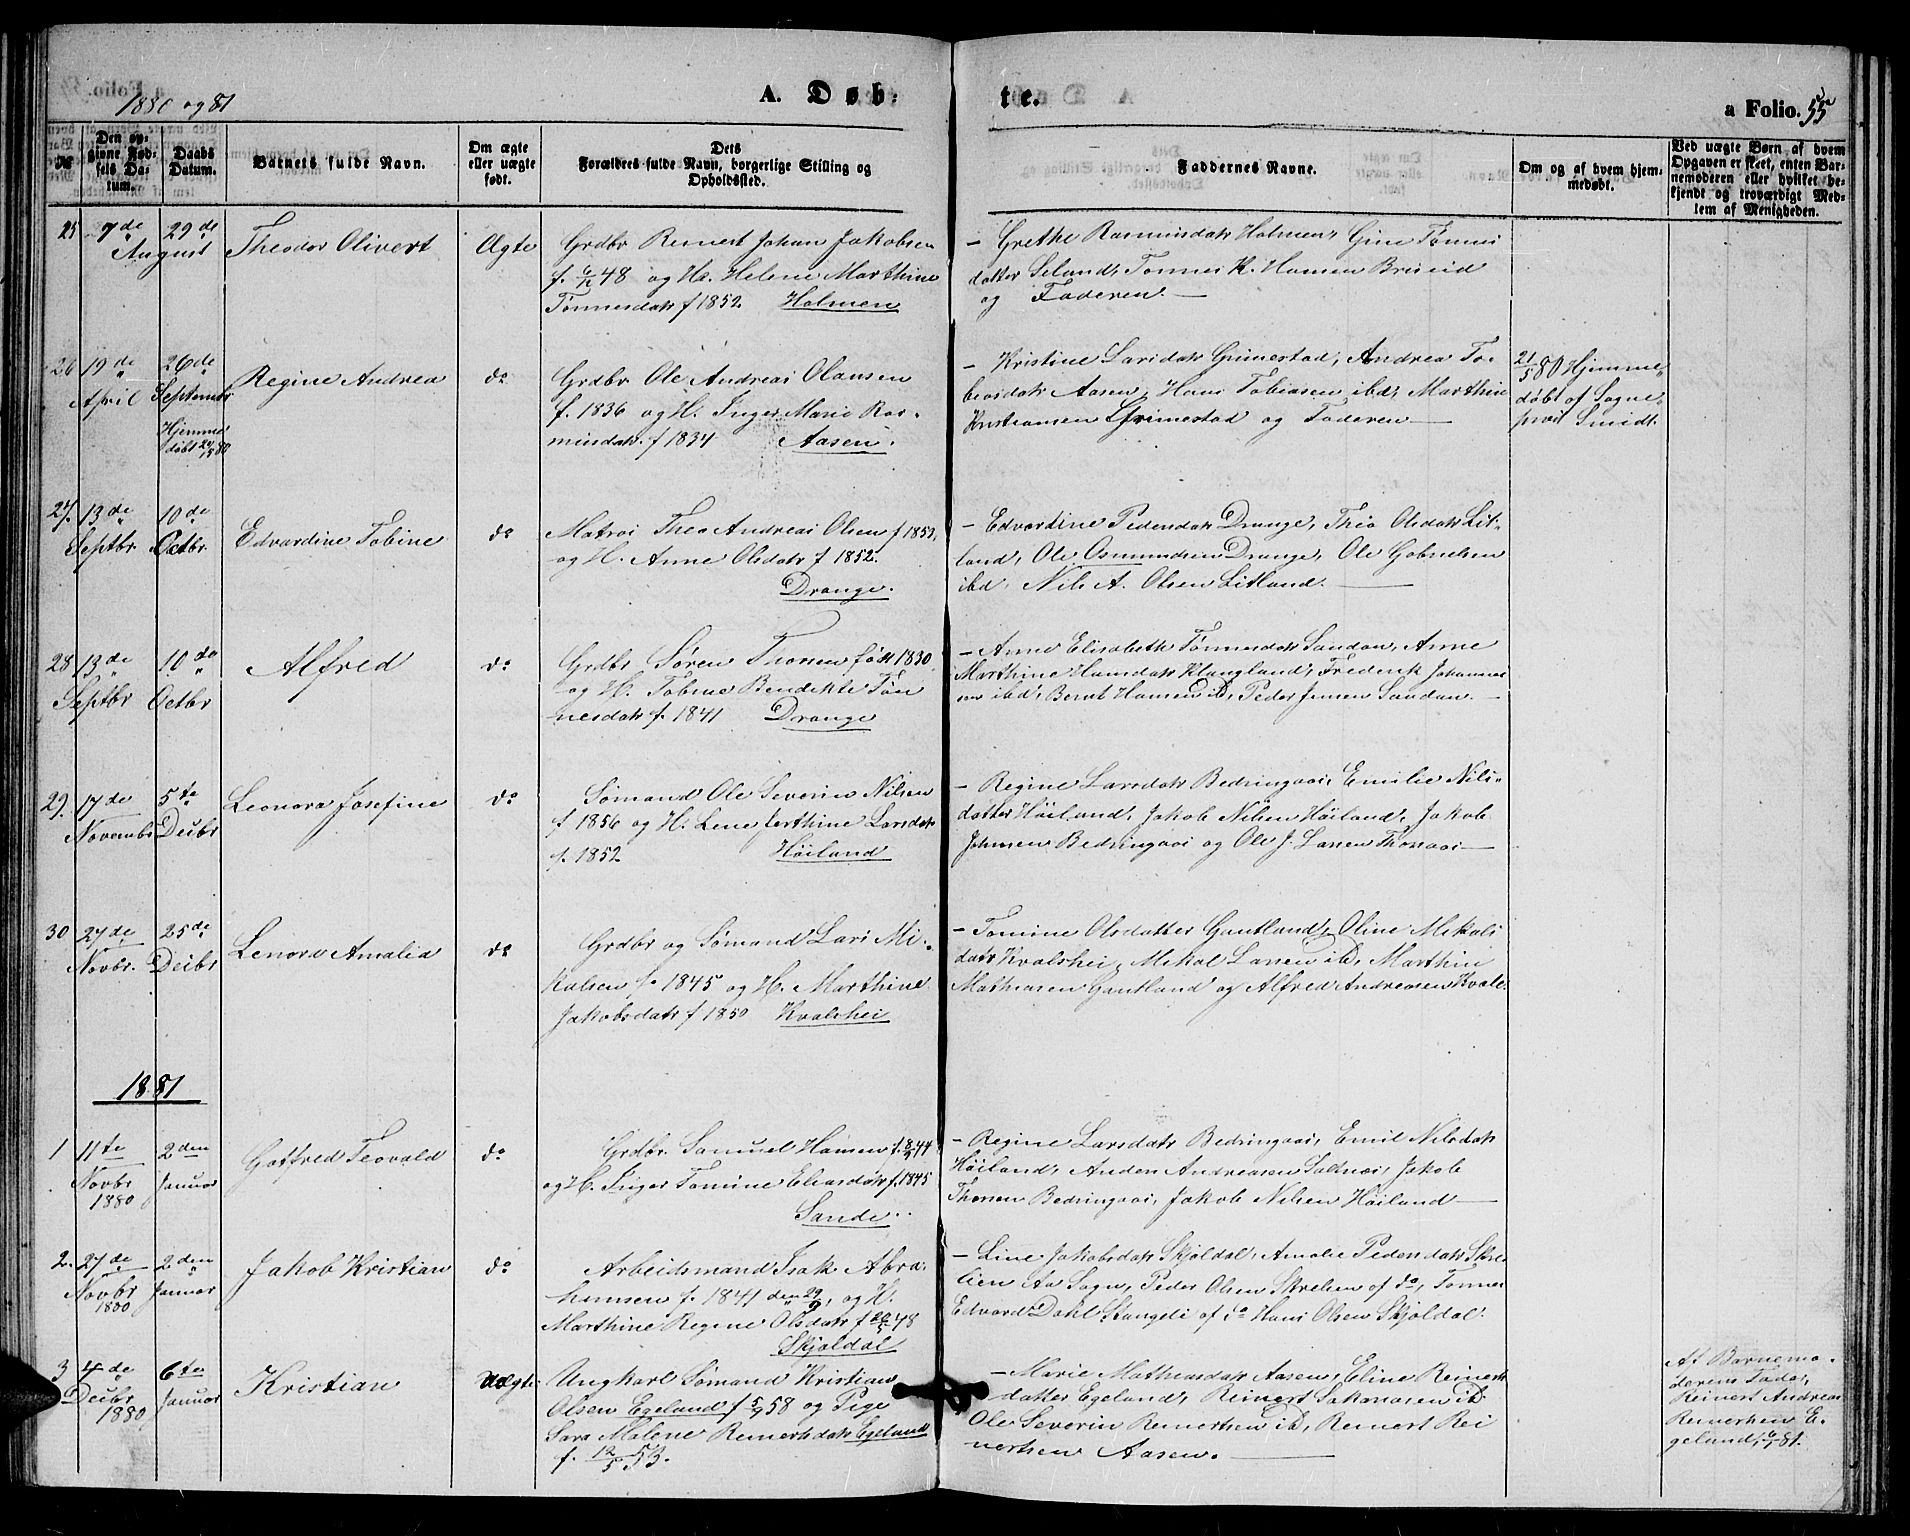 1880 og 81
A. Døb-
te.
a Folio. 55
№
Den opgivne Fødsels Datum.
Daabs Datum.
Barnets fulde Navn.
Om ægte eller uægte født.
Dets Forældres fulde Navn, borgerlige Stilling og Opholdssted.
Faddernes Navne.
Om og af hvem hjemmedøbt.
Ved uægte Børn af hvem Opgaven er skeet, enten Barnemoderen eller hvilket bekjendt og troværdigt Medlem af Menigheden.
25 7de August
29de
Theodor Olivert
Ægte
Grdbr Reinert Johan Jakobsen
f. 48 og H. Helene Marthine
Tønnesdatr f 1852. Holmen
– Grethe Rasmusdatr Holmen, Gine Tønnes
datter Seland, Tønnes K. Hansen Briseid
og Faderen. —
26 19de April
26de Septembr
Hjemmedøbt 80
Regine Andrea
do
Grdbr Ole Andreas Olausen
f. 1836 og H. Inger Marie Ras-
musdatr. f 1834 Aasen.
– Kristine Larsdatr Grimestad, Andrea To-
biasdatr Aasen, Hans Tobiasen ibd, Marthin
Kristiansen Grimestad og Faderen —
21/5 80 Hjemme„
døbt af Sogne„
præst Smidt.
27. 13de Septbr
10de Octbr
Edvardine Tobine
do
Matros Theo Andreas Olsen f 1852,
og H. Anne Olsdatr f 1852.
Drange.
– Edvardine Pedersdatr Drange, Thea Olsdatr Lit-
land, Ole Osmundsen Drange, Ole Gabrielsen
ibd, Nils A. Olsen Litland. —
28 13de Septbr
10de Octbr
Alfred
do
Grdbr Søren Thorsen født 1830
og H. Tobine Bendikte Tøn
nesdatr f. 1841 Drange
– Anne Elisabeth Tønnesdatr Sandan, Anne
Marthine Hansdatr Klungland, Frederik Johannes
sen ibd, Bernt Hansen ib, Peder Jensen Sandan. —
29. 17de Novembr
5te Decbr
Leonora Josefine
do
Sømand Ole Severin Nilsen
f 1856 og H. Lene Serthine Larsdatr
f. 1852 Høiland
– Regine Larsdatr Bedringaas, Emilie Nils-
datter Høiland, Jakob Nilsen Høiland, Jakob
Johnsen Bedringaas og Ole J. Larsen Thorsaas —
30 27de Novbr.
25de Decbr
Lenora Amalia
do
Grdbr og Sømand Lars Mi-
kalsen f. 1845 og H. Marthine
Jakobsdatr f 1850 Kvalshei
– Tomine Olsdatter Gautland, Oline Mikals
datr Kvalshei, Mikal Larsen ib, Marthin
Mathiasen Gautland og Alfred Andreasen Kvale.
1881
1 11te Novbr 1880
2den Januar
Gotfred Teovald
do
Grdbr. Samuel Hansen f. 8/9 44
og H. Inger Tomine Eliasdatr f. 1845
Sande.
– Regine Larsdatr Bedringaas, Emil Nilsdatr
Høiland, Anders Andreasen Salnes, Jakob
Thorsen Bedringaas, Jakob Nilsen Høiland —
2. 27de Novbr 1880
2den Januar
Jakob Kristian
do
Arbeidsmand Isak Abra-
hamsen f. 1841 den 29/9, og H.
Marthine Regine Olsdatr f 48
Skjøldal
– Line Jakobsdatr Skjøldal, Amalie Pedersdatr Skre-
lien Aa Sogn, Peder Olsen Skrelien af do, Tønnes
Edvard Dahl Stangeli af do Hans Olsen Skjøldal.
3 4de Decbr 1880
6te Januar
Kristian
Uægte
Ungkarl Sømand Kristian
Olsen Egeland f 5/9 58 og Pige
Sara Malene Reinertsdatr Egeland
f. 12/5 53.
– Marie Mathiasdatr Aasen, Eline Reinerts
datter Egeland, Reinert Sakariasen ib
Ole Severin Reinertsen ib, Reinert Rei
nertsen Aasen. —
Af Barnemo-
derens Fader,
Reinert Andreas
Reinertsen E-
geland, 6/1 81.